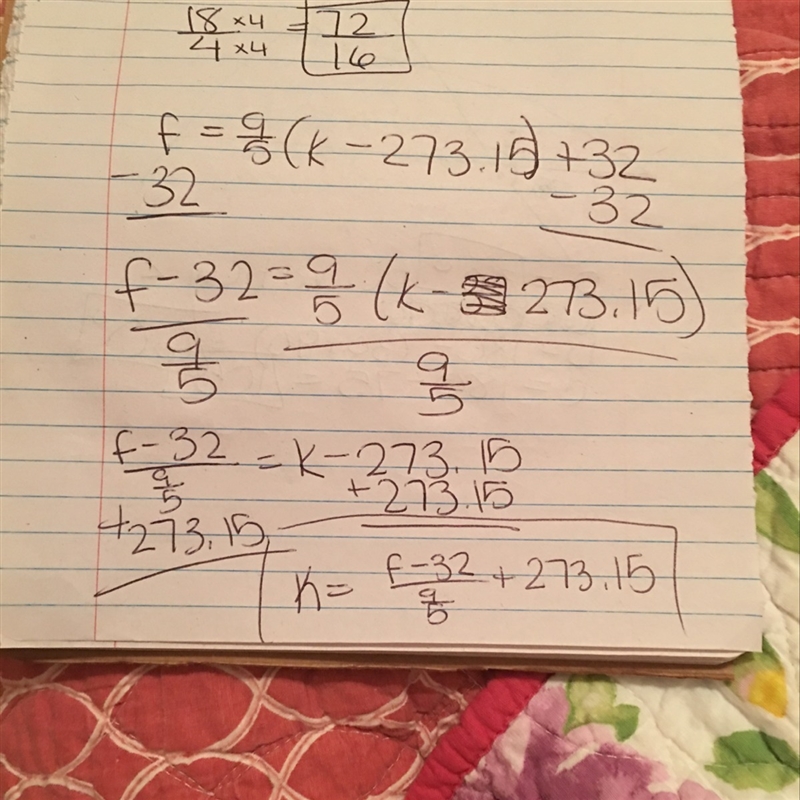 18 ×4 / 4 ×4 = 72/16
f = 9/5 (K − 273.15) + 32
− 32 − 32
f − 32 = 9/5 (K − 273.15)
9/5 9/5
f − 32 / 9/5 = K − 273.15
+ 273.15
+273.15
K = f − 32 / 9/5 + 273.15